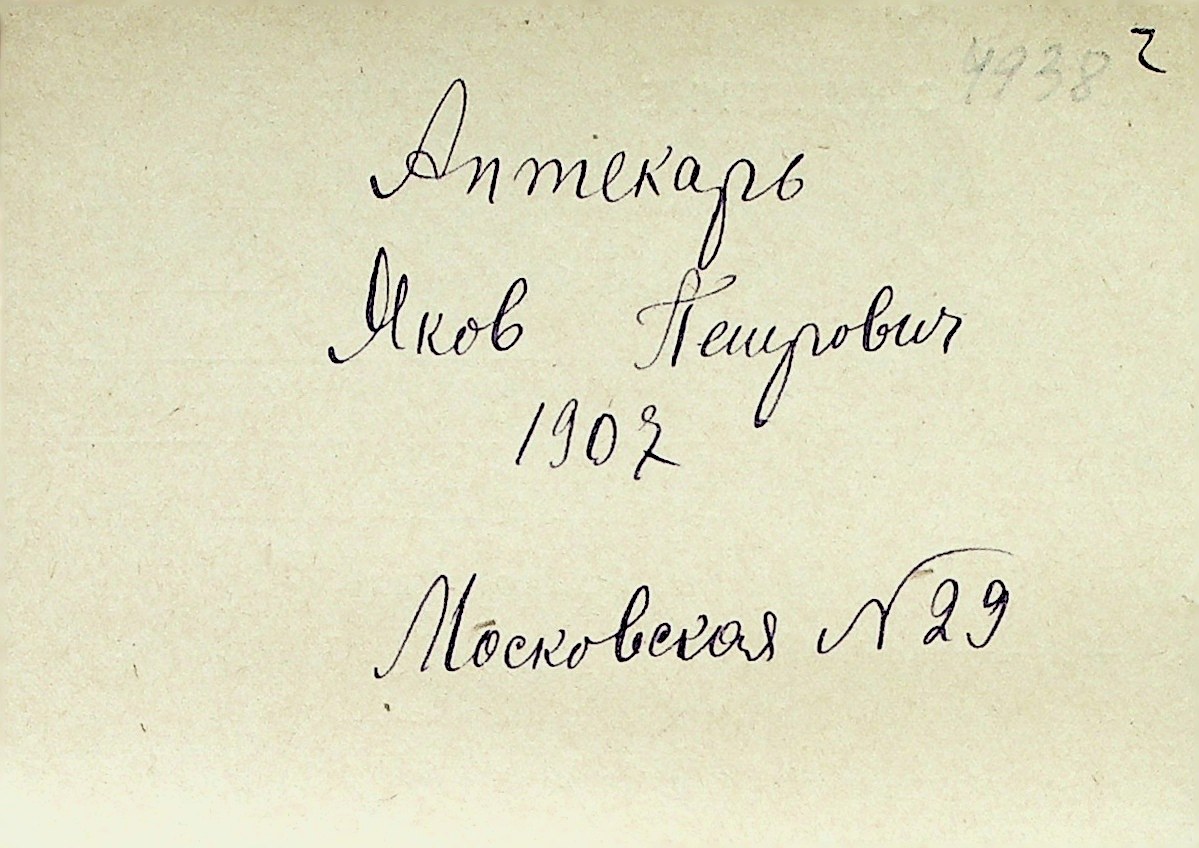 4938 2
Аптекарь
Яков Петрович
1907
Московская № 29